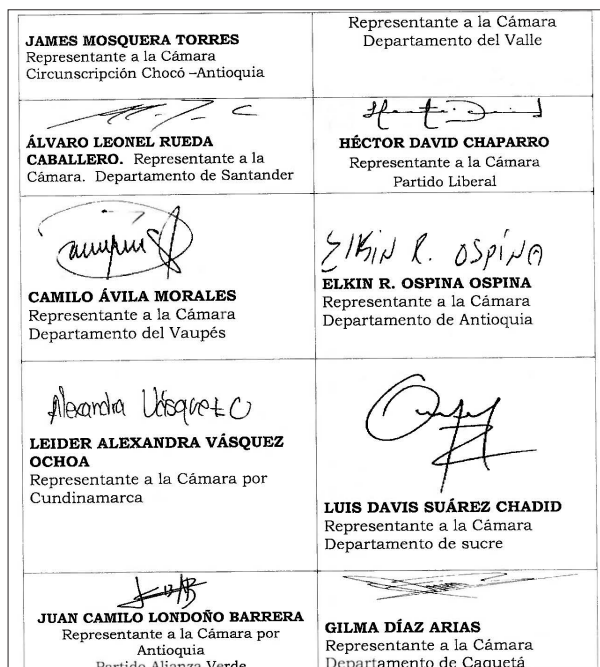 JAMES MOSQUERA TORRES
Representante a la Cámara
Circunscripción Chocó –Antioquia
Representante a la Cámara
Departamento del Valle
ÁLVARO LEONEL RUEDA
CABALLERO. Representante a la
Cámara. Departamento de Santander
HÉCTOR DAVID CHAPARRO
Representante a la Cámara
Partido Liberal
CAMILO ÁVILA MORALES
Representante a la Cámara
Departamento del Vaupés
Elkin R. OSpiNA
ELKIN R. OSPINA OSPINA
Representante a la Cámara
Departamento de Antioquia
Alexandra Vásquez O
LEIDER ALEXANDRA VÁSQUEZ
OCHOA
Representante a la Cámara por
Cundinamarca
LUIS DAVIS SUÁREZ CHADID
Representante a la Cámara
Departamento de sucre
JUAN CAMILO LONDOÑO BARRERA
Representante a la Cámara por
Antioquia
Partido Alianza Verde
GILMA DÍAZ ARIAS
Representante a la Cámara
Departamento de Caquetá